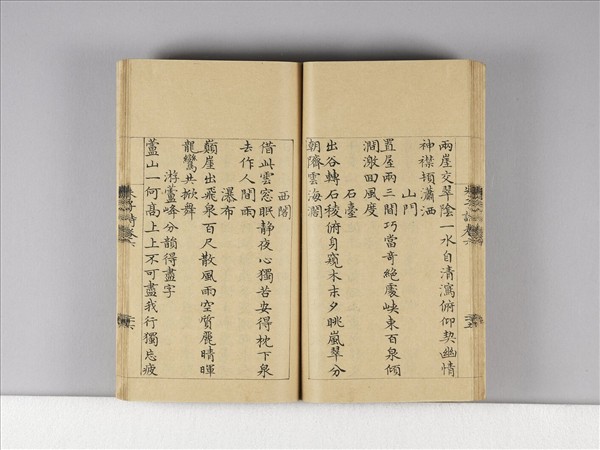 兩崖交翠陰一水自清瀉俯仰契幽情
神襟頓瀟洒
山門
置屋兩三間巧當奇絕處峽束百泉傾
澗激回風度
石臺
出谷轉石稜俯身窺木末夕眺嵐翠分
朝隮雲海闊
西閣
借此雲窓眠静夜心獨苦安得枕下泉
去作人間雨
瀑布
巔崖出飛泉百尺散風雨空質麗晴暉
龍鸞共掀舞
游蘆峰分韻得盡字
蘆山一何高上上不可盡我行獨忘疲